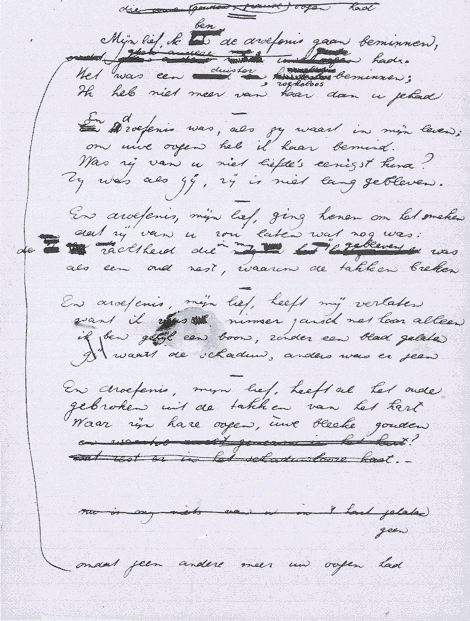 oogen had
ben
Mijn lief, ik de droefenis gaan beminnen,
oogen hadr.
duister
Het was een beminnen;
roekeloos
Ik heb niet meer van haar dan u gehad
d
En droefenis was, als gy waart in mijn leven;
om uwe oogen heb ik haar bemind.
Was zij van u niet liefde's eenigst kind?
Zy was als gij, zij is niet lang gebleven.
En droefenis, mijn lief, ging henen om het smeken
dat zij van u zou laten wat nog was:
de zachtheid die gebleven was
als een oud nest, waarom de takken breken
En droefenis, mijn lief, heeft mij verlaten
want ik nimmer gansch met haar alleen
ik ben gelijk een boom, zonder een blad gelaten
gij waart de schaduw, anders was er geen
En droefenis, mijn lief, heeft al het oude
gebroken uit de takken van het hart
Waar zijn hare oogen, uwe bleeke gouden
in het hart?
wat rest er in het schaduwlooze hart. -
nu is my niets van u in 't hart gelaten
geen
omdat geen andere meer uw oogen had